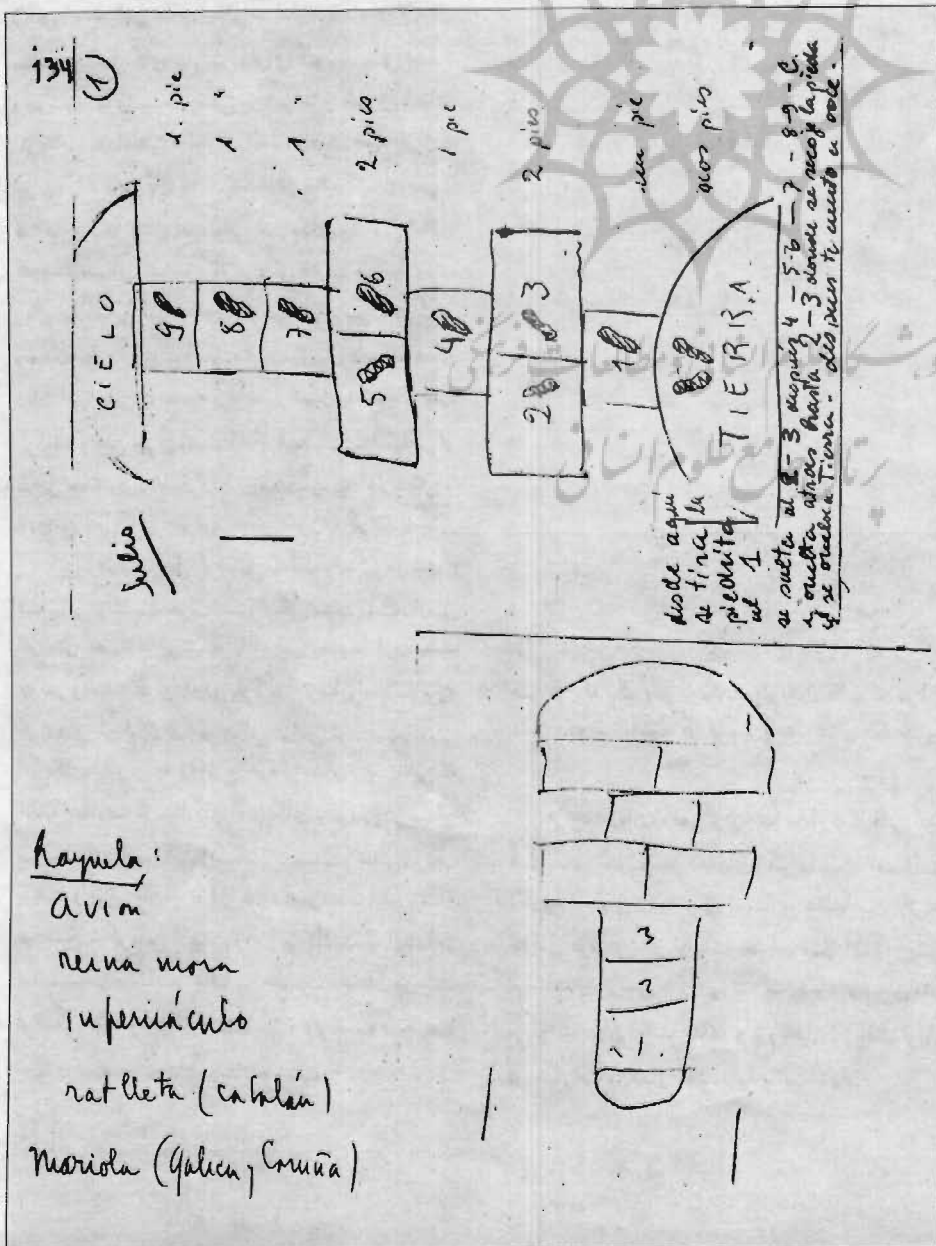 134
1
1. pie
1 "
1 "
2 pies
1 pie
2 pies
un pie
dos pies
CIELO
9
8
7
5 6
4
2 3
1
TIERRA
Julio
desde aquí
se tira la
piedrita
al 1
se salta al 2-3 después 4-5-6-7-8-9-C.
y vuelta atrás hasta 2-3 donde se recoge la piedra
y se vuelve a Tierra. después te cuento
Rayuela:
avión
reina mora
infernáculo
ratlleta (catalán)
Mariola (Galicia y Coruña)
3
2
1.